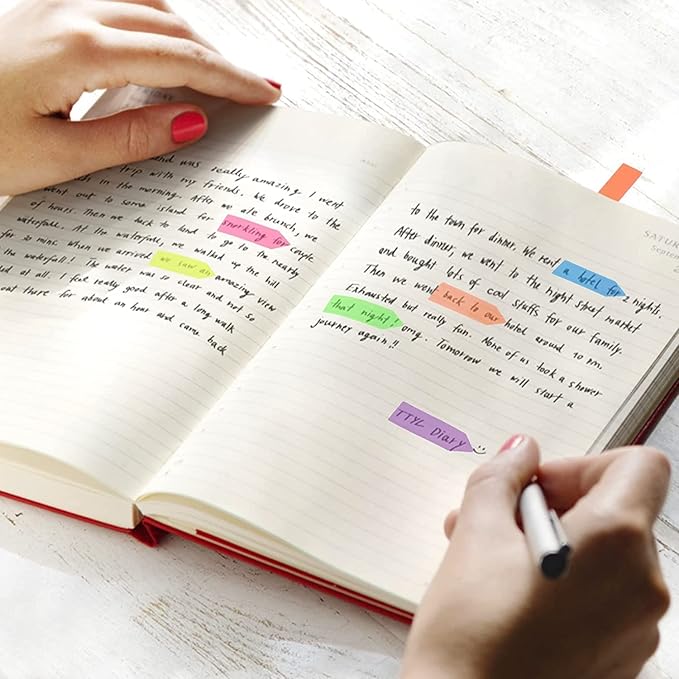 and was really amazing I went
trip with my friends. We drove to the
in the morning. After we ate brunch, we
went out to some island for snorkling for couple
of hours. Then we back to land to go to the nearby
waterfall. At the waterfall, we walked up the hill
for 30 mins. When we arrived we saw an amazing view
the waterfall! The water was so clear and not so
at all. I feel really good after a long walk
out there for about an hour and came back
SATUR
Septem
to the town for dinner. We rent a hotel for 2 nights.
After dinner, we went to the night street market
and bought lots of cool stuffs for our family.
Then we went back to our hotel around 10 pm.
Exhausted but really fun. None of us took a shower
that night! omg. Tomorrow we will start a
journey again!!
TTYL Diary